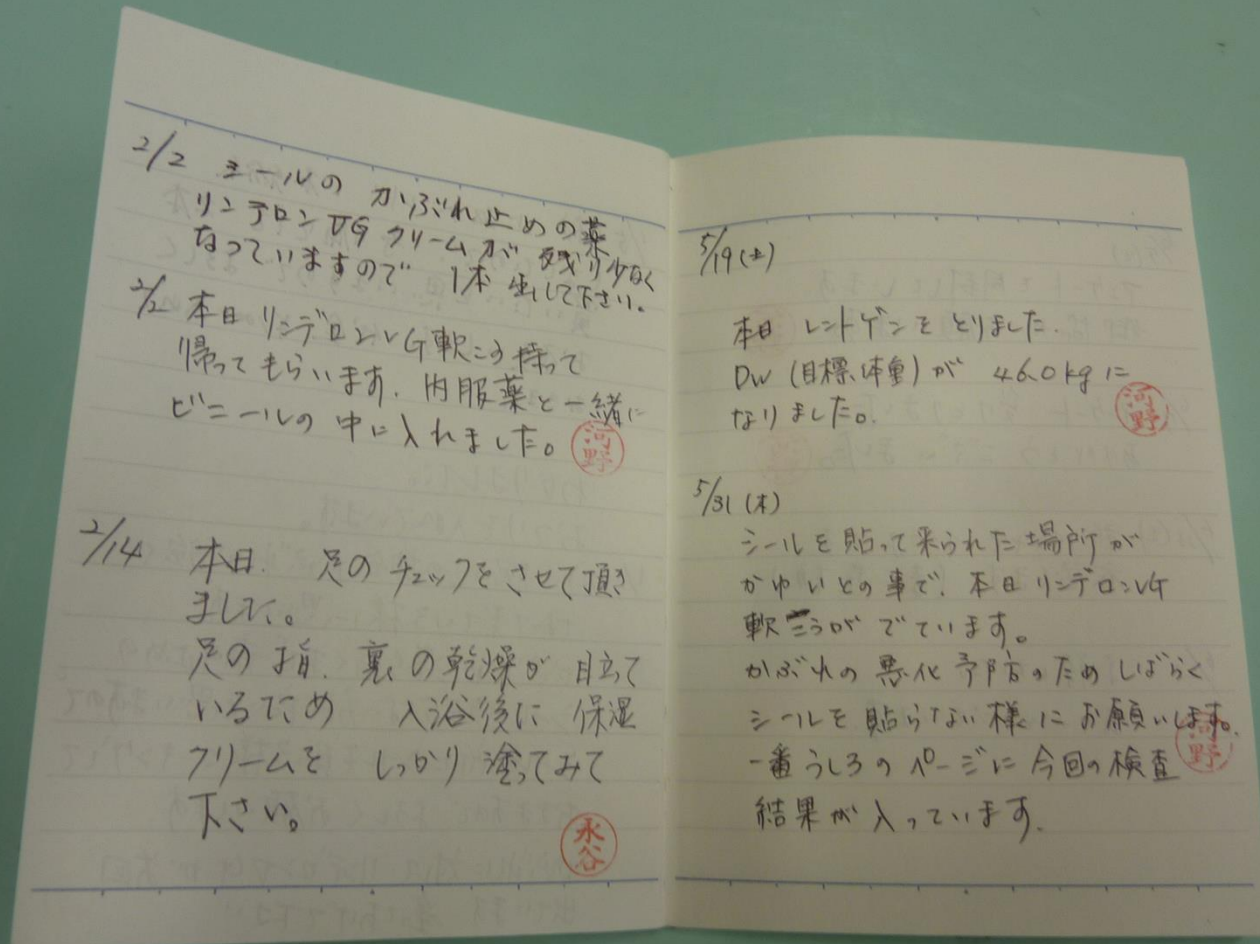 2/2 シールの かぶれ止めの薬
リンデロンVG クリームが 残り少なく
なっていますので 1本 出して下さい。
2/2 本日 リンデロンVG軟こう持って
帰ってもらいます. 内服薬と一緒に
ビニールの中に入れました。
河野
2/14 本日. 足の チェックをさせて頂き
ました。
足の指. 裏の乾燥が 目立って
いるため 入浴後に 保湿
クリームを しっかり 塗ってみて
下さい。
永谷
5/19(土)
本日 レントゲンをとりました.
DW (目標体重)が 46.0kgに
なりました。
河野
5/31(木)
シールを貼って来られた場所が
かゆいとの事で. 本日リンデロンVG
軟こうが でています。
かぶれの悪化予防のためしばらく
シールを貼らない様にお願いします。
河野
一番うしろのページに今回の検査
結果が入っています.